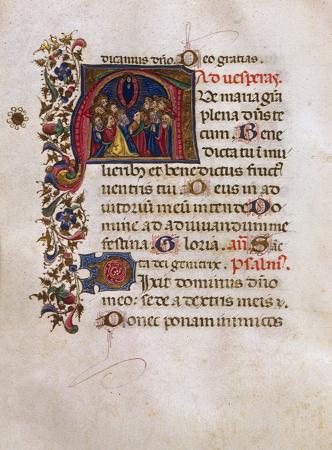 dicamus dño. Deo gratias.
Ad vesperas
Ave maria grã
plena dñs te
cum Bene
dicta tu i mu
lieribꝫ et benedictus fruct̃
ventris tui Deus in ad
iutoriũ meum intende Do
mine ad adiuvandum me
festina Gloria. añ Sãc
ta dei genitrix. Psalm̃?
Dixit dominus dño
meo: sede a dextris meis
Donec ponam inimicos